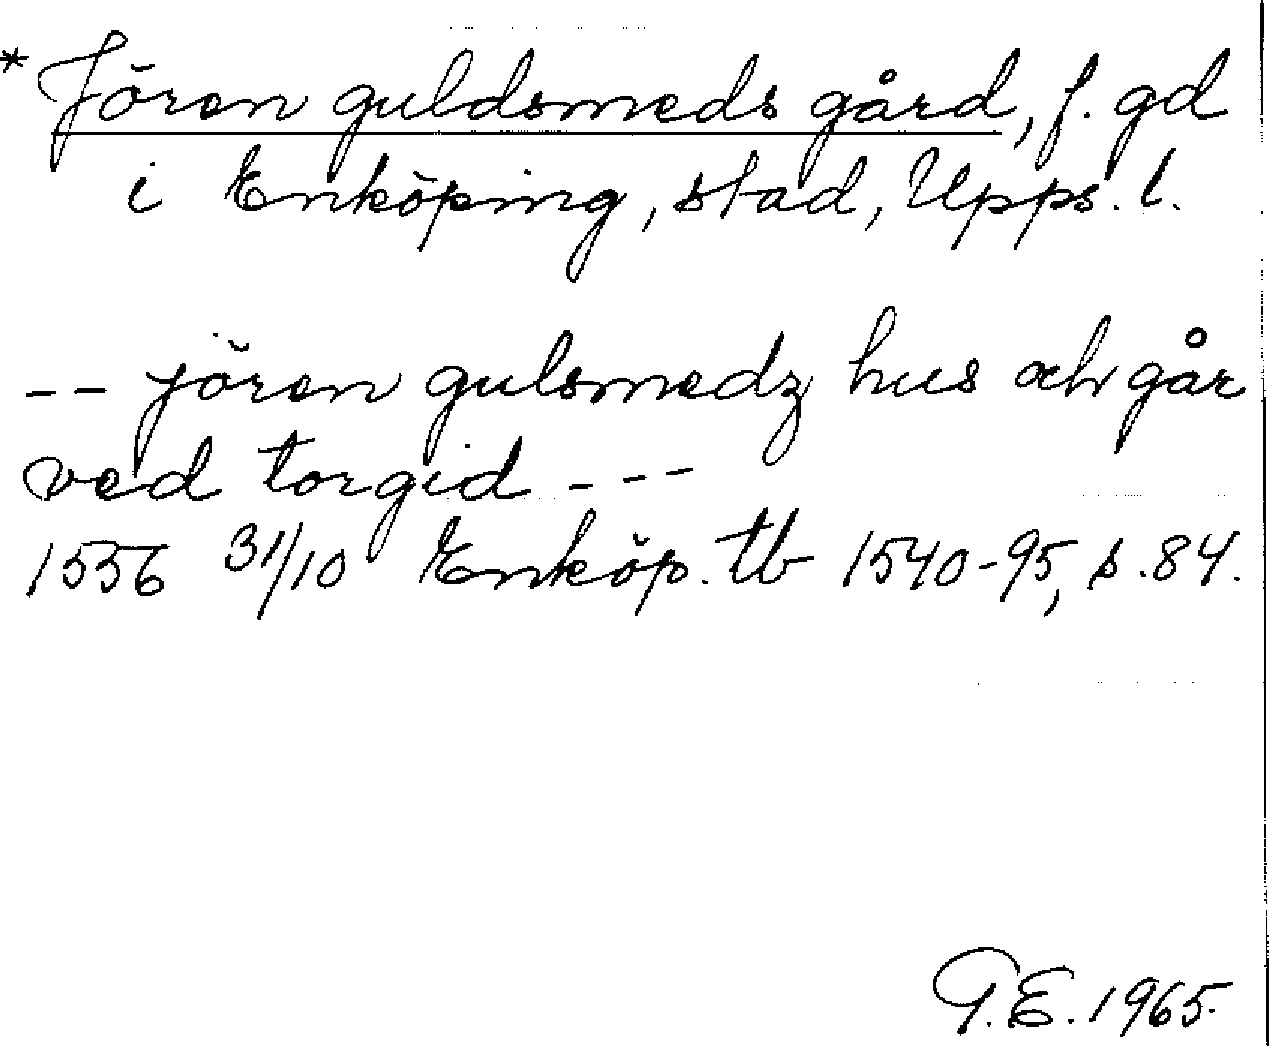 * Jören guldsmeds gård, f. gd
i Enköping, stad, Upps. l.
-- jören gulsmedz hus och går
ved torgid ---
1556 31/10 Enköp. tb 1540-95, s. 84.
G.E. 1965.